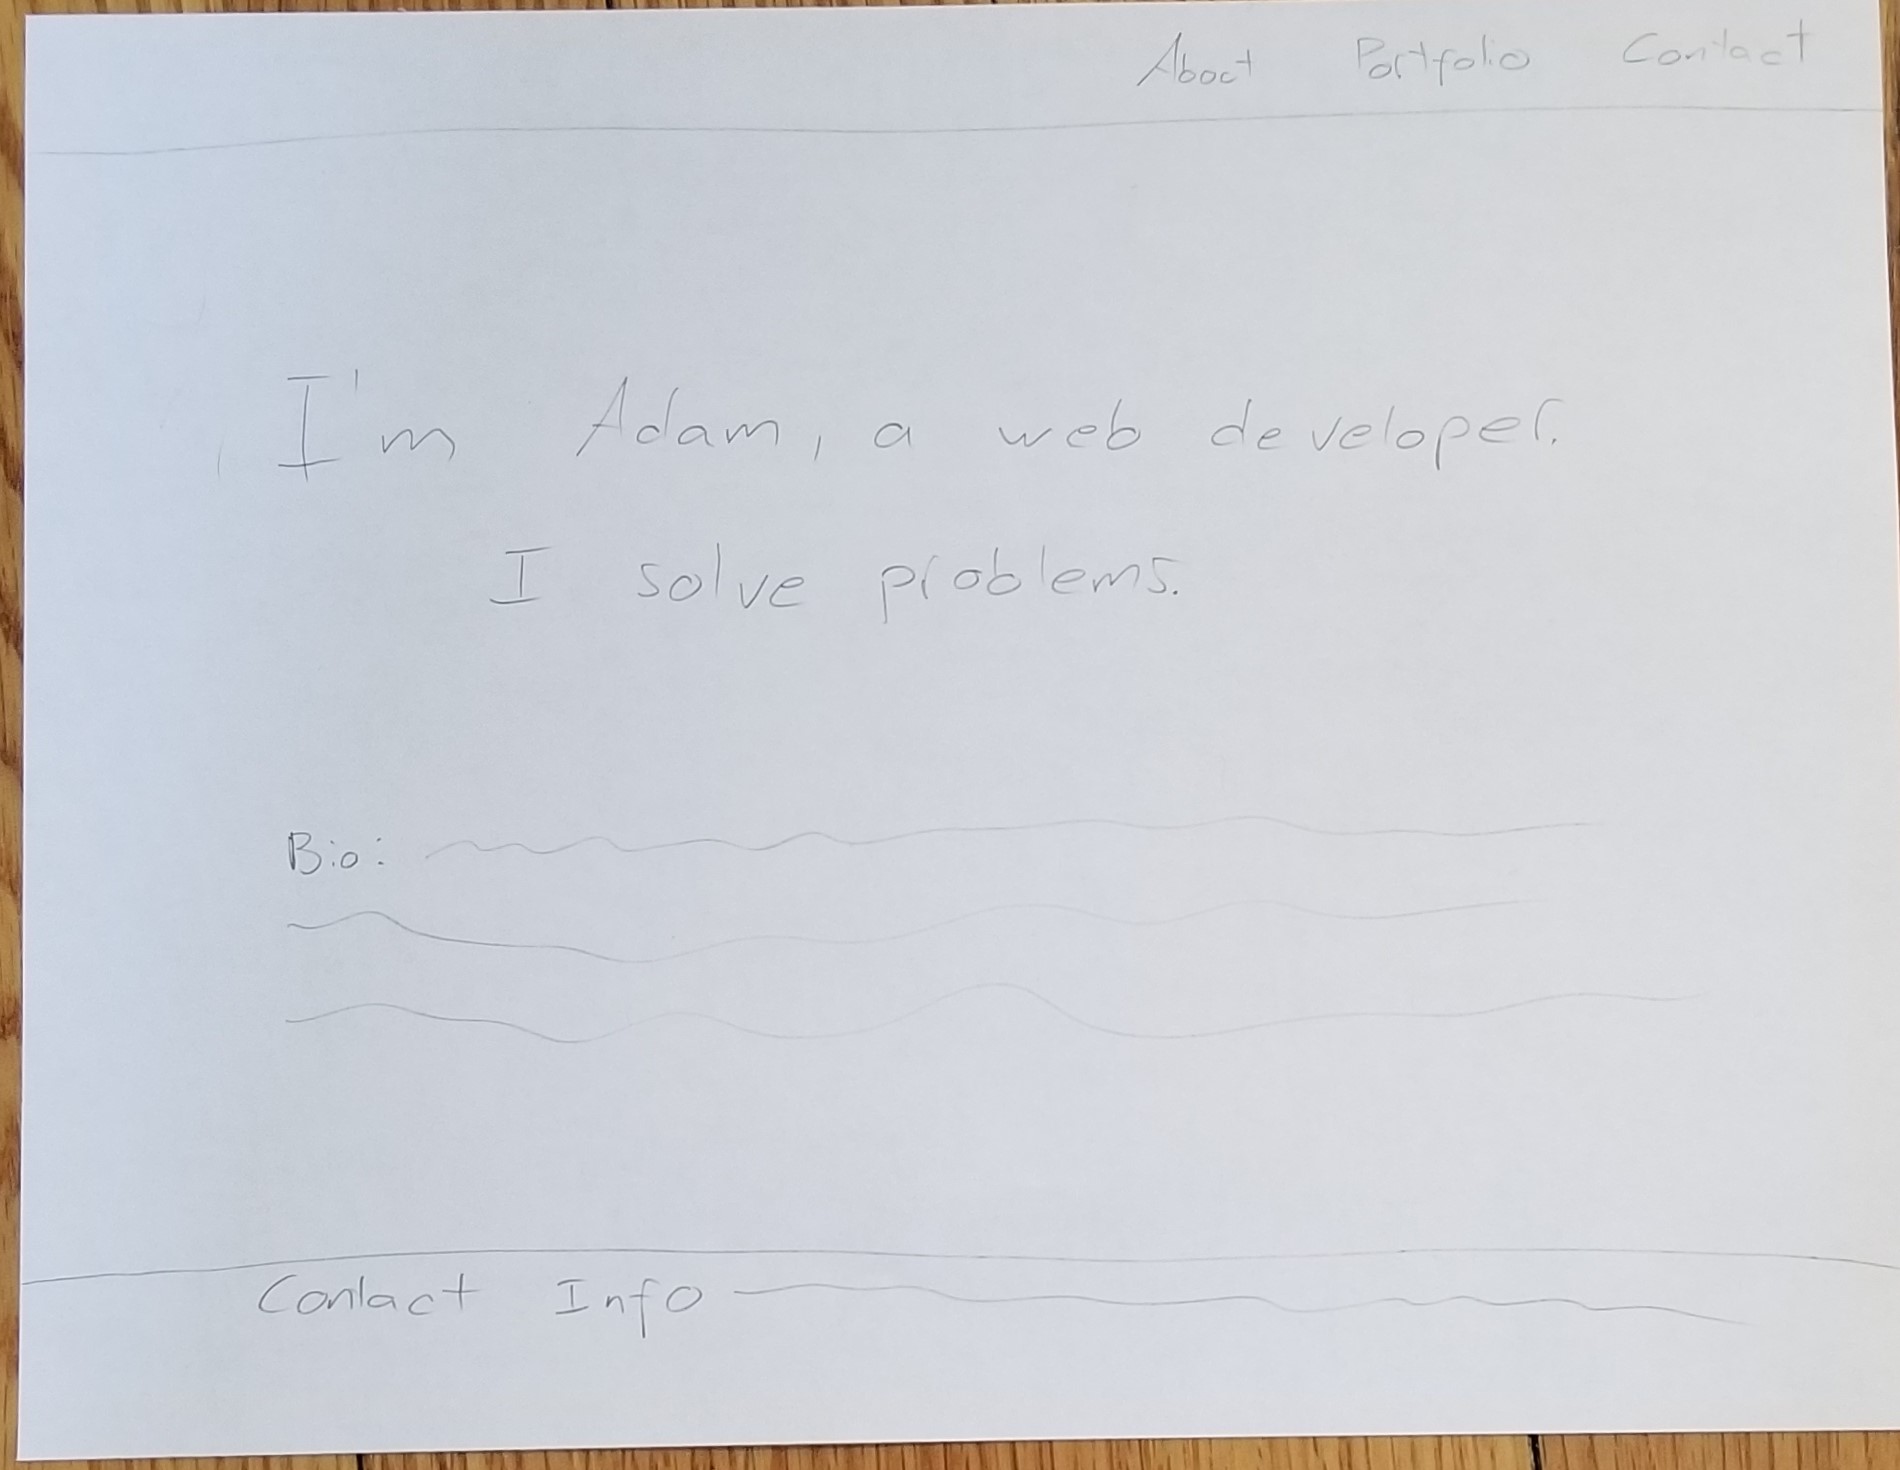 About Portfolio Contact
I'm Adam, a web developer.
I solve problems.
Bio:
Contact Info